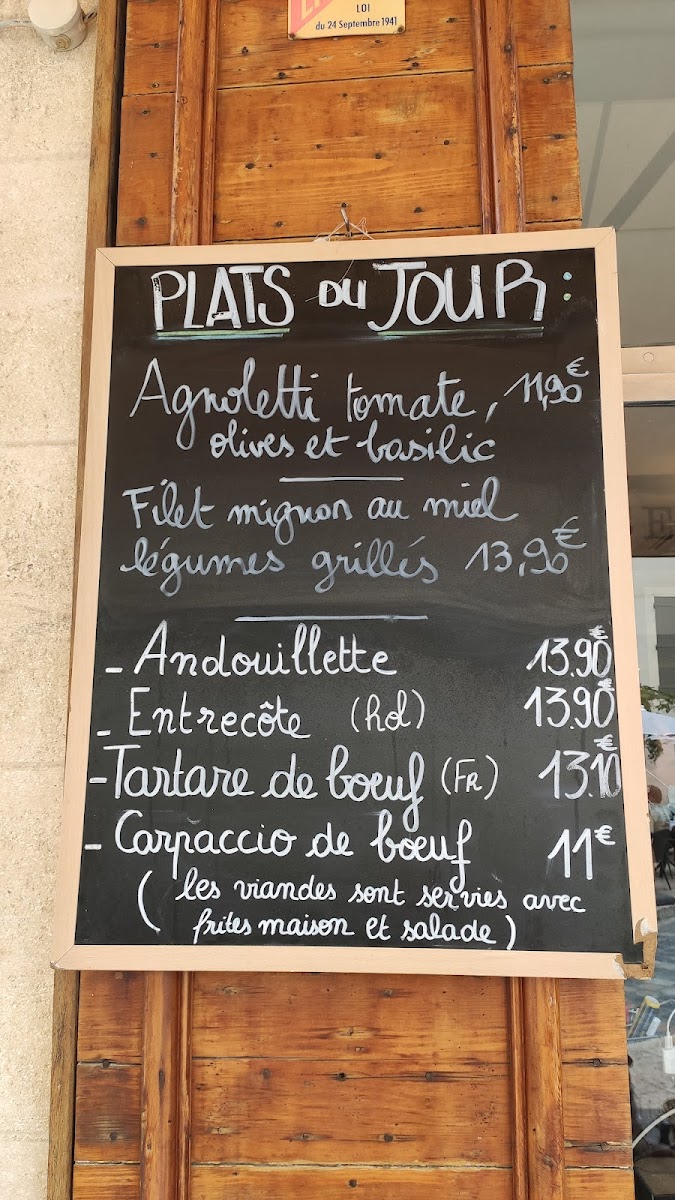 LOI
du 24 Septembre 1941
PLATS DU JOUR :
Agnoletti tomate, 11,90€
olives et basilic
Filet mignon au miel
légumes grillés 13,90€
- Andouillette 13.90€
- Entrecôte (hol) 13.90€
- Tartare de bœuf (FR) 13.10€
- Carpaccio de bœuf 11€
( les viandes sont servies avec
frites maison et salade )